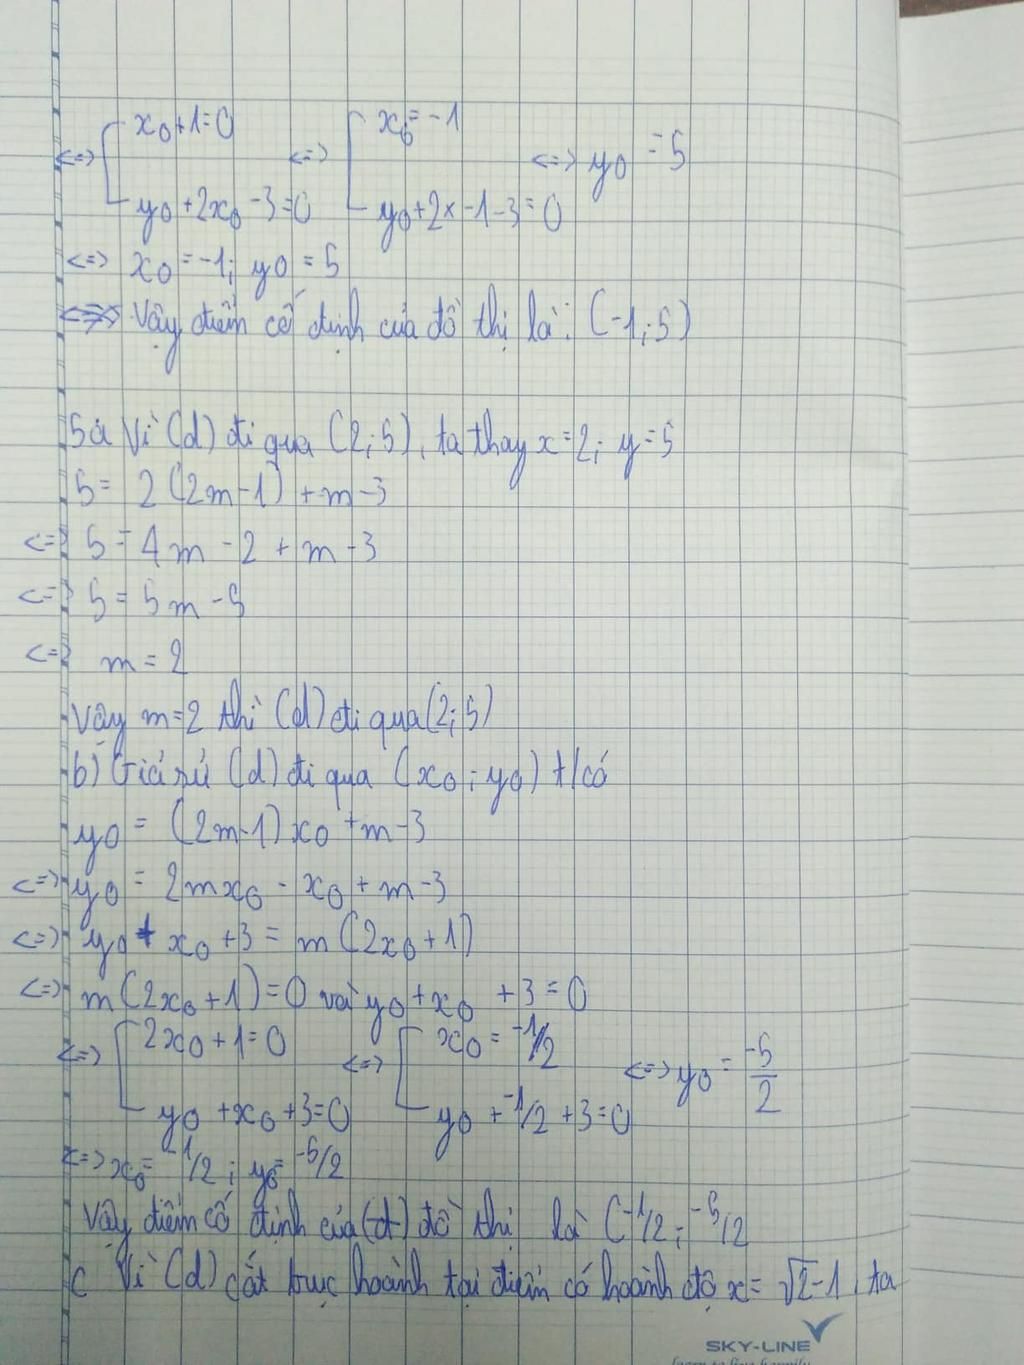 <=> [ x0+1=0 <=> [ x0=-1 <=> y0 = 5
y0+2x0-3=0 y0+2x-1-3=0
<=> x0=-1; y0=5
Vậy điểm cố định của đồ thị là: (-1;5)
5a Vì (d) đi qua (2;5), ta thay x=2; y=5
5= 2(2m-1)+m-3
<=> 5=4m-2+m-3
<=> 5=5m-5
<=> m=2
Vậy m=2 thì (d) đi qua (2;5)
b) Giả sử (d) đi qua (x0;y0) t/có
y0 = (2m-1)x0+m-3
<=> y0 = 2mx0-x0+m-3
<=> y0+x0+3=m(2x0+1)
<=> m(2x0+1)=0 và y0+x0+3=0
<=> [ 2x0+1=0 <=> [ x0=-1/2 <=> y0=-5/2
y0+x0+3=0 y0+-1/2+3=0
<=> x0=-1/2; y0=-5/2
Vậy điểm cố định của (d) đồ thị là (-1/2;-5/2
c Vì (d) cắt trục hoành tại điểm có hoành độ x=√2-1, ta
SKY-LINE
learn to live happily